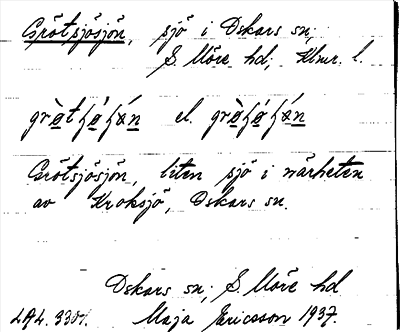 Grötsjösjön, sjö i Oskars sn;
S. Möre hd; Klmr. l.
el.
Grötsjösjön, liten sjö i närheten
av Kroksjö, Oskars sn.
Oskars sn; S. Möre hd
Maja Ericsson 1937.